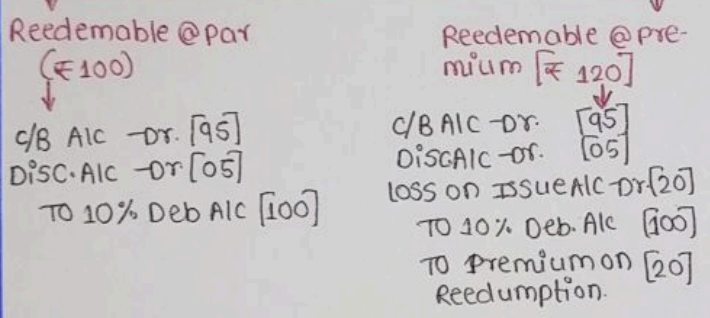 Reedemable @ par
(₹ 100)
C/B A/C -Dr. [95]
DISC. A/C -Dr [05]
TO 10% Deb A/C [100]
Reedemable @ pre-
mium [₹ 120]
C/B A/C -Dr. [95]
DISC A/C -Dr. [05]
LOSS on ISSUE A/C -Dr [20]
TO 10% Deb. A/C [100]
TO Premium on [20]
Reedumption.